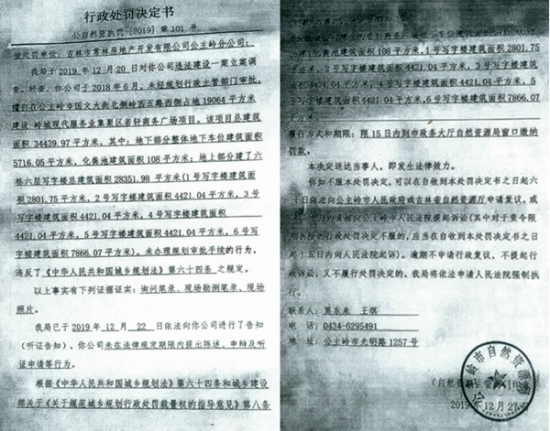 行政处罚决定书
公自然资执罚[2019]第 101 号
被处罚单位：吉林市常林房地产开发有限公司公主岭分公司：
我局于 2019 年 12 月 20 日对你公司违法建设一案立案调
查。经查，你公司于 2018 年 6 月，未经规划行政主管部门审批，
擅自在公主岭市国文大街北侧岭西五路西侧占地 19064 平方米
建设 岭城现代服务业集聚区若轩商务广场项目。该项目总建筑
面积 34439.97 平方米，其中：地下部分整体地下车位建筑面积
5716.05 平方米，化粪池建筑面积 108 平方米；地上部分建了六
栋六层写字楼总建筑面积 28351.98 平方米(1 号写字楼建筑面
积 2801.75 平方米，2 号写字楼建筑面积 4421.04 平方米，3 号
写字楼建筑面积 4421.04 平方米，4 号写字楼建筑面积
4421.04 平方米，5 号写字楼建筑面积 4421.04 平方米，6 号写
字楼建筑面积 7866.07 平方米)。未办理规划审批手续的行为，
违反了《中华人民共和国城乡规划法》第六十四条 之规定。
以上事实有下列证据证实：询问笔录、现场勘测笔录、现场
照片。
我局已于 2019 年 12 月 22 日依法向你公司进行了告知
(听证告知)，你公司未在法律规定期限内提出陈述、申辩及听
证申请等行为。
根据《中华人民共和国城乡规划法》第六十四条和城乡建设
部关于《关于规范城乡规划行政处罚裁量权的指导意见》第八条
化粪池建筑面积 108 平方米，1 号写字楼建筑面积 2801.75
平方米，2 号写字楼建筑面积 4421.04 平方米，3 号写字楼建筑
面积 4421.04 平方米，4 号写字楼建筑面积 4421.04 平方米，5
号写字楼建筑面积 4421.04 平方米，6 号写字楼建筑面积 7866.07
平方米)。
履行方式和期限：限 15 日内到市政务大厅自然资源局窗口缴纳
罚款。
本决定送达当事人，即发生法律效力。
你如不服本处罚决定，可以在自收到本处罚决定书之日起六
十日依法向公主岭市人民政府或吉林省自然资源厅申请复议，或
向公主岭市人民法院提起诉讼(其中对于责令限
行政处罚决定不服的，应当在自收到本处罚决定书之日
起十五日内向人民法院起诉)。逾期不申请行政复议、不提起行
政诉讼，又不履行处罚决定的，我局将依法申请人民法院强制执
行。
联系人：莫东来 王琪
电 话：0434-6295491
地 址：公主岭市光明路 1257 号
公主岭市自然资源局
2019 年 12 月 27 日